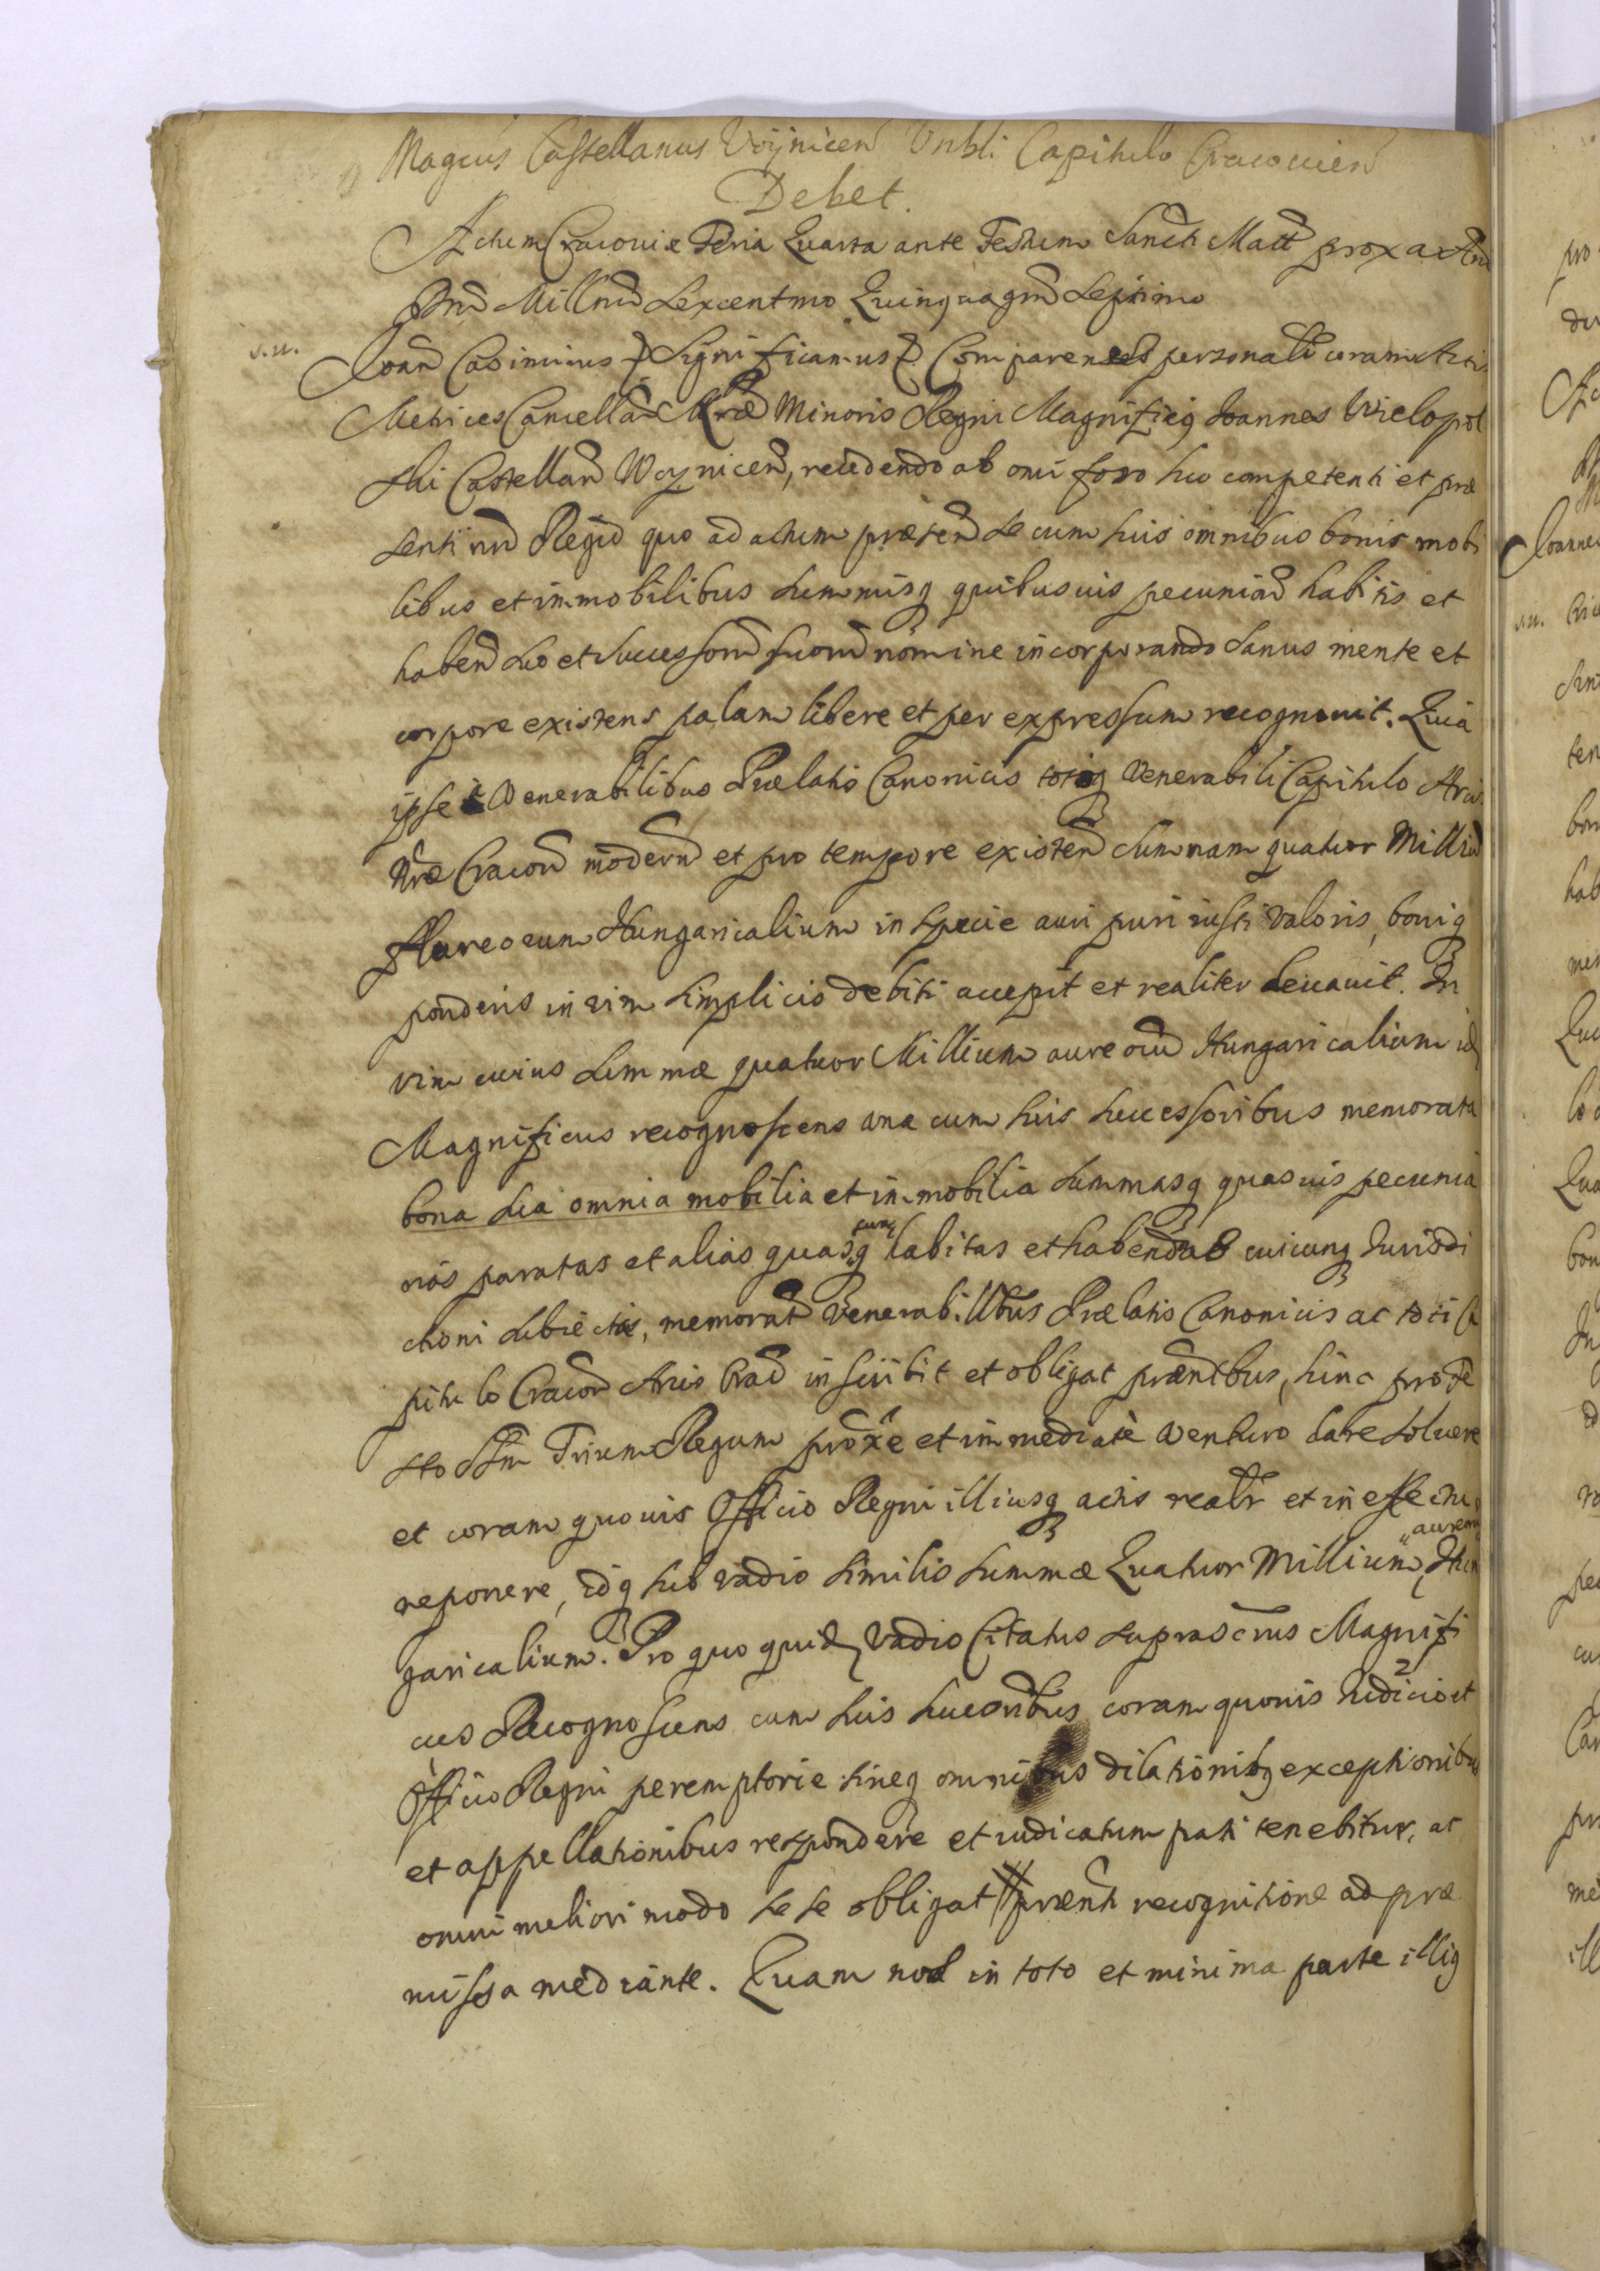 Magcus Castellanus Voÿnicen Vnbli Capitulo Cracouien
Debet.
Actum Cracouiæ Feria Quarta ante Festum Sancti Matt proxa Ano
Dnd Millmo Sexcentmo Quinquagmo Septimo
v.u.
Joan Casimirus Significamus Comparens personalr coram Actis
Metrices Cancellar Nræ Minoris Regni Magnificq Joannes Wielopol
ski Castellan Woynicen, recedendo ab omi foro suo competenti et præ
senti nro Regio quo ad actum præsen se cum suis omnibus bonis mobi
libus et immobilibus summisq quibusuis pecuniar habitis et
haben suo et successorum suorum nomine incorporando sanus mente et
corpore existens palam libere et per expressum recognouit. Quia
ipse Venerabilibus Prælatis Canonicis totiq Venerabili Capitulo Arcis
Nræ Cracouien modern et pro tempore existen summam quatuor Millium
Aureorum Hungaricalium in specie auri puri iusti valoris, boniq
ponderis in vim simplicis debiti accepit et realiter leuauit. In
vim cuius summæ quatuor Millium aureorum Hungaricalium id
Magnificus recognoscens una cum suis successoribus memorata
bona sua omnia mobilia et immobilia summasq quasuis pecunia
rias paratas et alias quascunq habitas et habendas cuicunq Jurisdi
ctioni subiectas, memorat Venerabilibus Prælatis Canonicis ac toti Ca
pitulo Cracouien Arcis inscribit et obligat præntbus, hinc pro fe
sto SSm Trium Regum proxe et immediatè venturo dare soluere
et coram quouis Officio Regni illiusq actis realr et in effectu
reponere, idq sub vadio similis summæ Quatuor Millium aureorum Hun
garicalium. Pro quo quid vadio Citatus suprascrus Magnifi
cus Recognoscens cum suis succoribus coram quouis Judicio et
Officio Regni peremptorie sineq omnibus dilationibq exceptionibus
et appellationibus respondere et iudicatum pati tenebitur, ac
omni meliori modo sese obligat prænti recognitione ad præ
missa mediante. Quam nos in toto et minima parte illiq